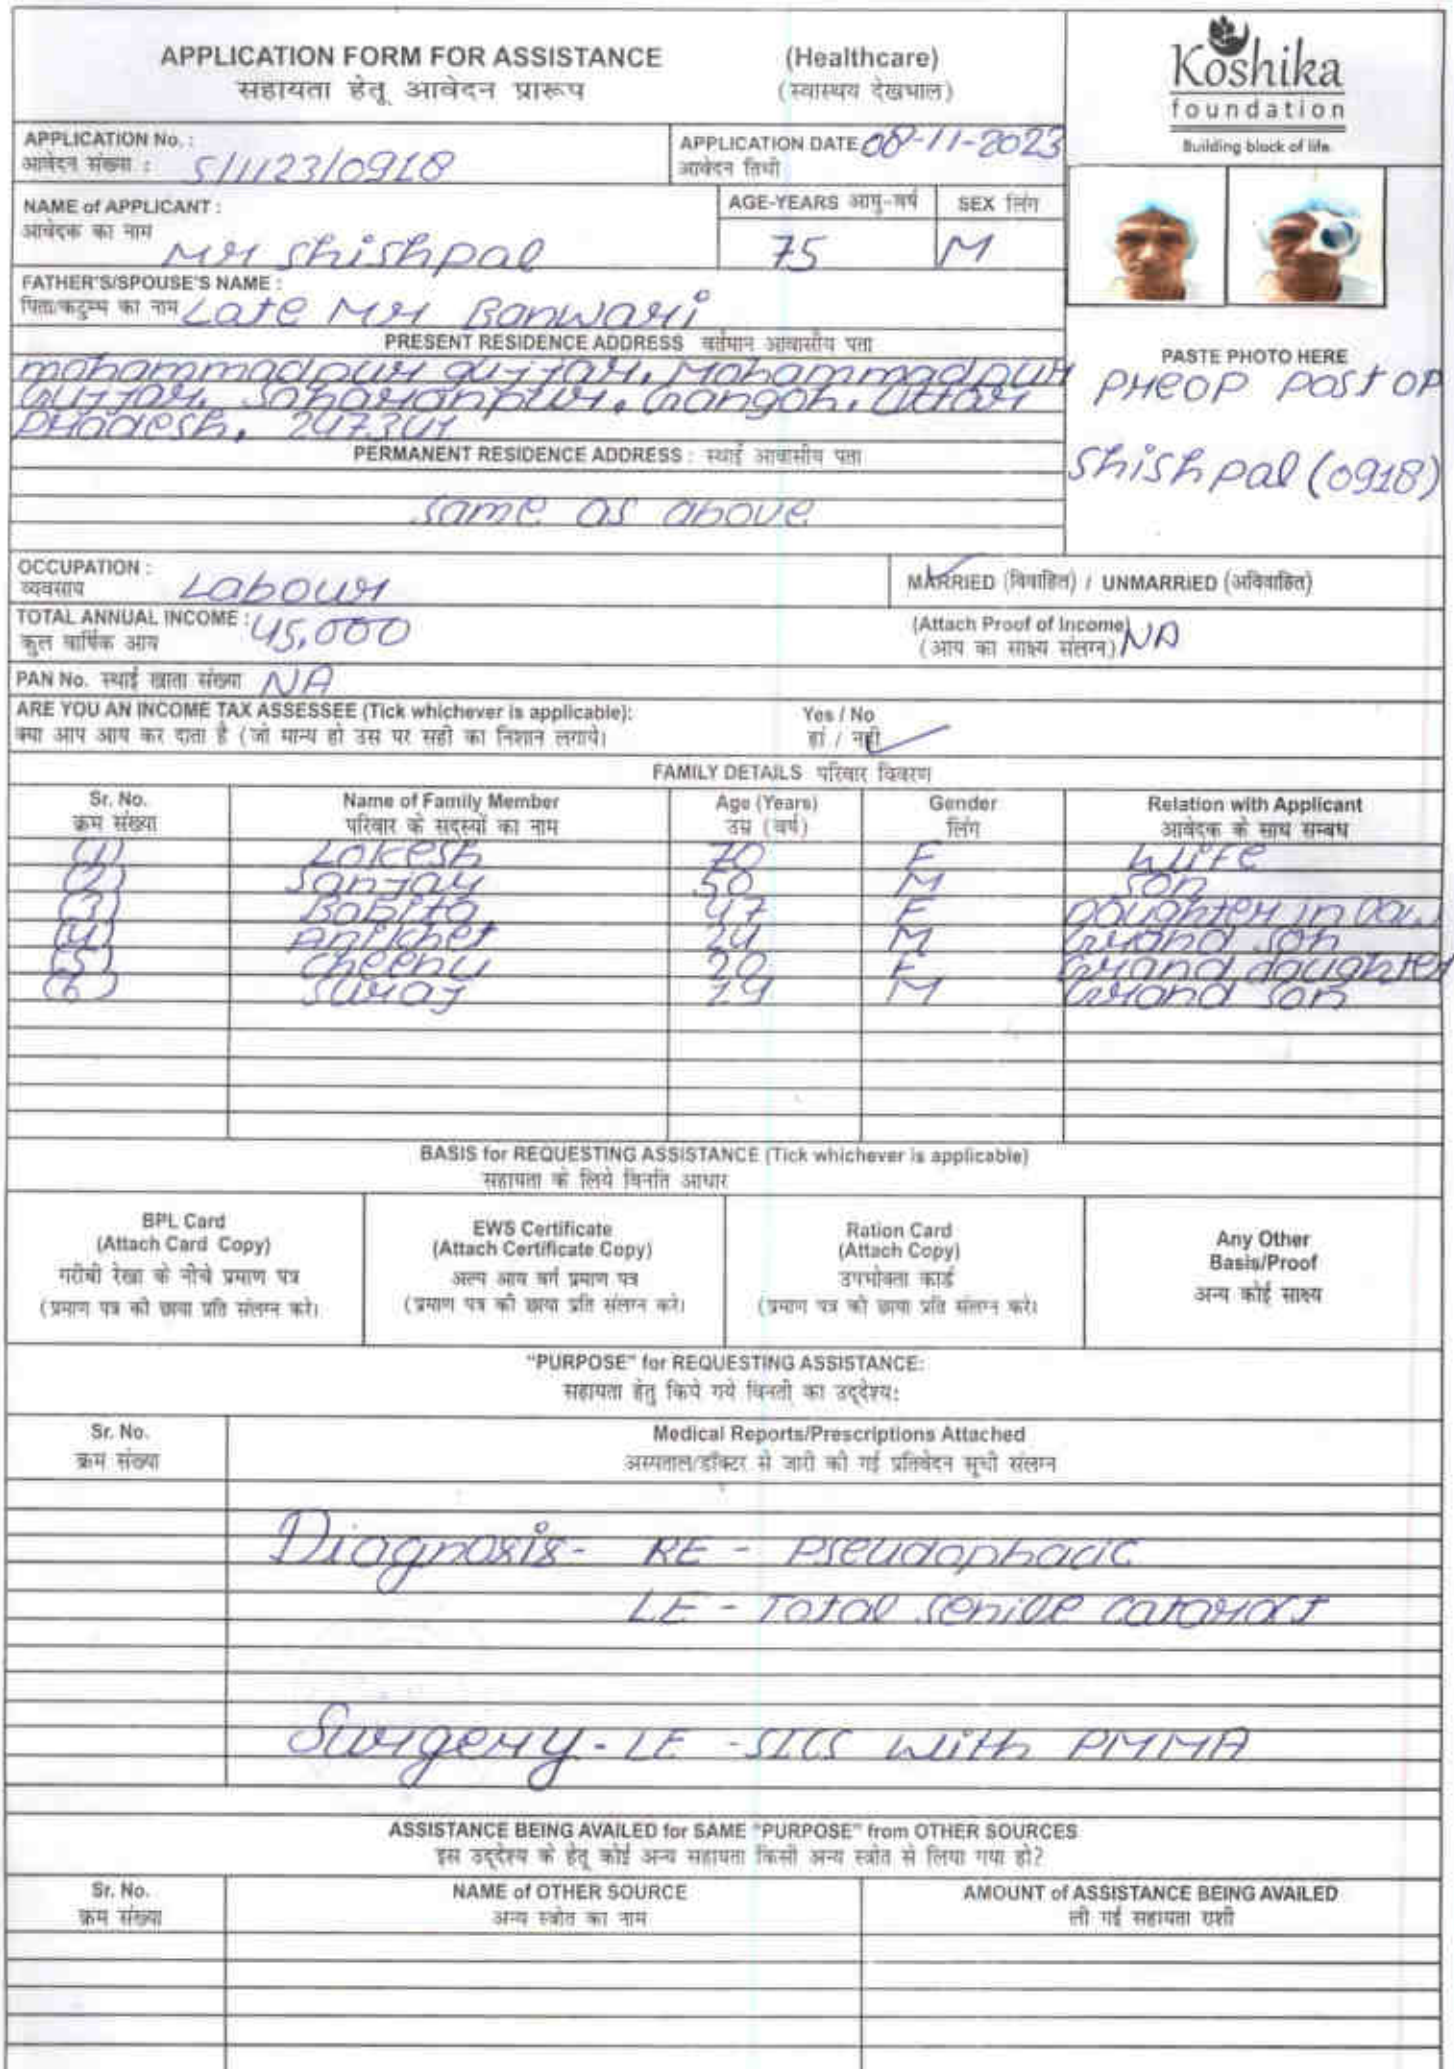 APPLICATION FORM FOR ASSISTANCE (Healthcare)
सहायता हेतू आवेदन प्रारूप (स्वास्थ्य देखभाल)
Koshika
foundation
Building block of life
APPLICATION No. : S/1123/0918
आवेदन संख्या :
APPLICATION DATE 08-11-2023
आवेदन तिथी
NAME of APPLICANT :
आवेदक का नाम Mr Shishpal
AGE-YEARS आयु-वर्ष 75
SEX लिंग M
FATHER'S/SPOUSE'S NAME :
पिता/कटुम्ब का नाम Late Mr Banwari
PRESENT RESIDENCE ADDRESS वर्तमान आवासीय पता
mohammadpur gujjar, Mohammadpur
Gujjar, Saharanpur, Gangoh, Uttar
Pradesh, 247341
PERMANENT RESIDENCE ADDRESS : स्थाई आवासीय पता
same as above
PASTE PHOTO HERE
Preop Post OP
Shishpal (0918)
OCCUPATION :
व्यवसाय Labour
MARRIED (विवाहित) / UNMARRIED (अविवाहित)
TOTAL ANNUAL INCOME : 45,000
कुल वार्षिक आय
(Attach Proof of Income) NA
(आय का साक्ष्य संलग्न)
PAN No. स्थाई खाता संख्या NA
ARE YOU AN INCOME TAX ASSESSEE (Tick whichever is applicable): Yes / No
क्या आप आय कर दाता है (जो मान्य हो उस पर सही का निशान लगाये। हां / नही
FAMILY DETAILS परिवार विवरण
Sr. No. Name of Family Member Age (Years) Gender Relation with Applicant
क्रम संख्या परिवार के सदस्यों का नाम उम्र (वर्ष) लिंग आवेदक के साथ सम्बध
(1) Lokesh 70 F Wife
(2) Sanjay 50 M Son
(3) Babita 47 F Daughter in law
(4) Anikhet 24 M Grand son
(5) Cheenu 20 F Grand daughter
(6) Suraj 19 M Grand son
BASIS for REQUESTING ASSISTANCE (Tick whichever is applicable)
सहायता के लिये विनति आधार
BPL Card
(Attach Card Copy)
गरीबी रेखा के नीचे प्रमाण पत्र
(प्रमाण पत्र की छाया प्रति संलग्न करे।
EWS Certificate
(Attach Certificate Copy)
अल्प आय वर्ग प्रमाण पत्र
(प्रमाण पत्र की छाया प्रति संलग्न करे।
Ration Card
(Attach Copy)
उपभोक्ता कार्ड
(प्रमाण पत्र की छाया प्रति संलग्न करे।
Any Other
Basis/Proof
अन्य कोई साक्ष्य
"PURPOSE" for REQUESTING ASSISTANCE:
सहायता हेतु किये गये विनती का उद्देश्य:
Sr. No. Medical Reports/Prescriptions Attached
क्रम संख्या अस्पताल/डॉक्टर से जारी की गई प्रतिवेदन सूची संलग्न
Diagnosis- RE - Pseudophacic
LE - Total senile cataract
Surgery - LE - SICS with PMMA
ASSISTANCE BEING AVAILED for SAME "PURPOSE" from OTHER SOURCES
इस उद्देश्य के हेतू कोई अन्य सहायता किसी अन्य स्त्रोत से लिया गया हो?
Sr. No. NAME of OTHER SOURCE AMOUNT of ASSISTANCE BEING AVAILED
क्रम संख्या अन्य स्त्रोत का नाम ली गई सहायता राशी